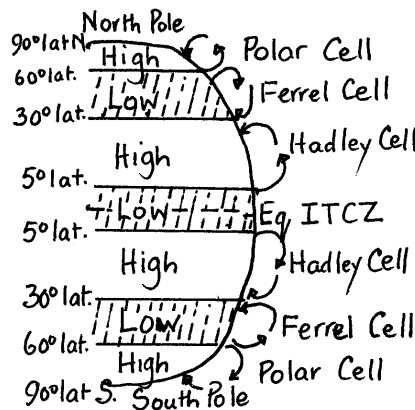 North Pole
90° lat N.
High
Polar Cell
60° lat.
Low
Ferrel Cell
30° lat.
High
Hadley Cell
5° lat.
Low
Eq. ITCZ
5° lat.
High
Hadley Cell
30° lat.
Low
Ferrel Cell
60° lat.
High
Polar Cell
90° lat S.
South Pole